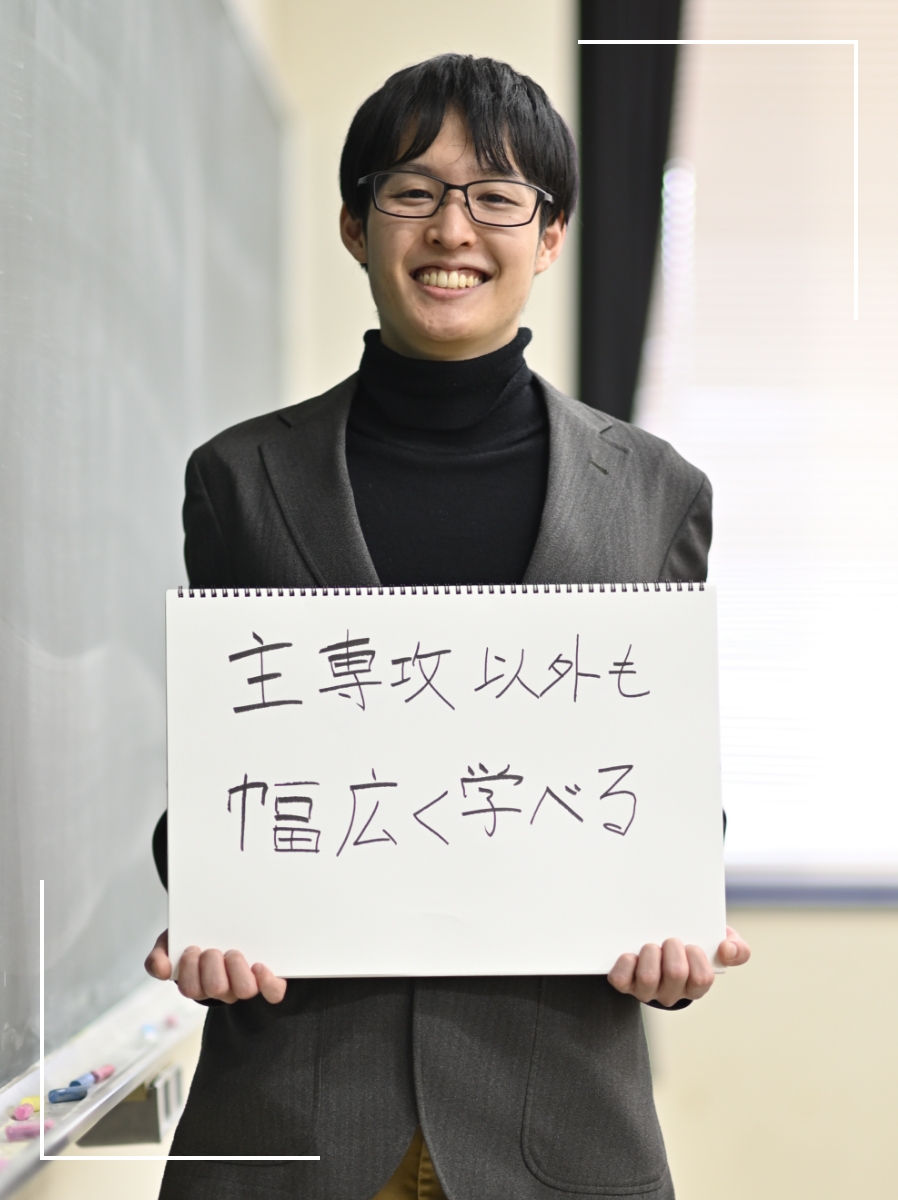 主専攻以外も
幅広く学べる